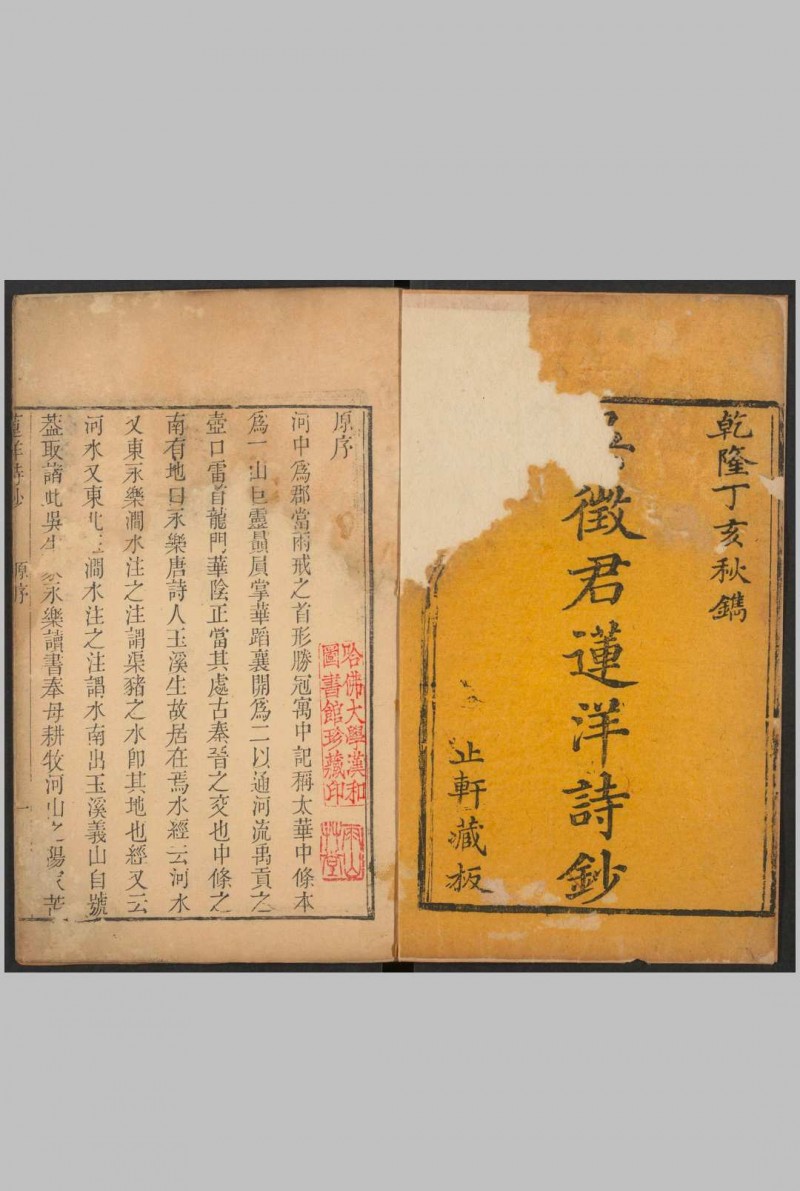 乾隆丁亥秋鐫
徵君蓮洋詩鈔
止軒藏板
原序
河中為郡當兩戒之首形勝冠寓中記稱太華中條本
為一山巨靈贔屓掌華蹈襄開為二以通河流禹貢之
壺口雷首龍門華陰正當其處古秦晉之交也中條之
南有地曰永樂唐詩人玉溪生故居在焉水經云河水
又東永樂澗水注之注謂渠豬之水卽其地也經又云
河水又東澗水注之注謂水南出玉溪義山自號
葢取諸此吳永樂讀書奉母耕牧河山之陽
哈佛大學漢和
圖書館珍藏印
雨山
艸堂
蓮洋詩鈔 原序 一